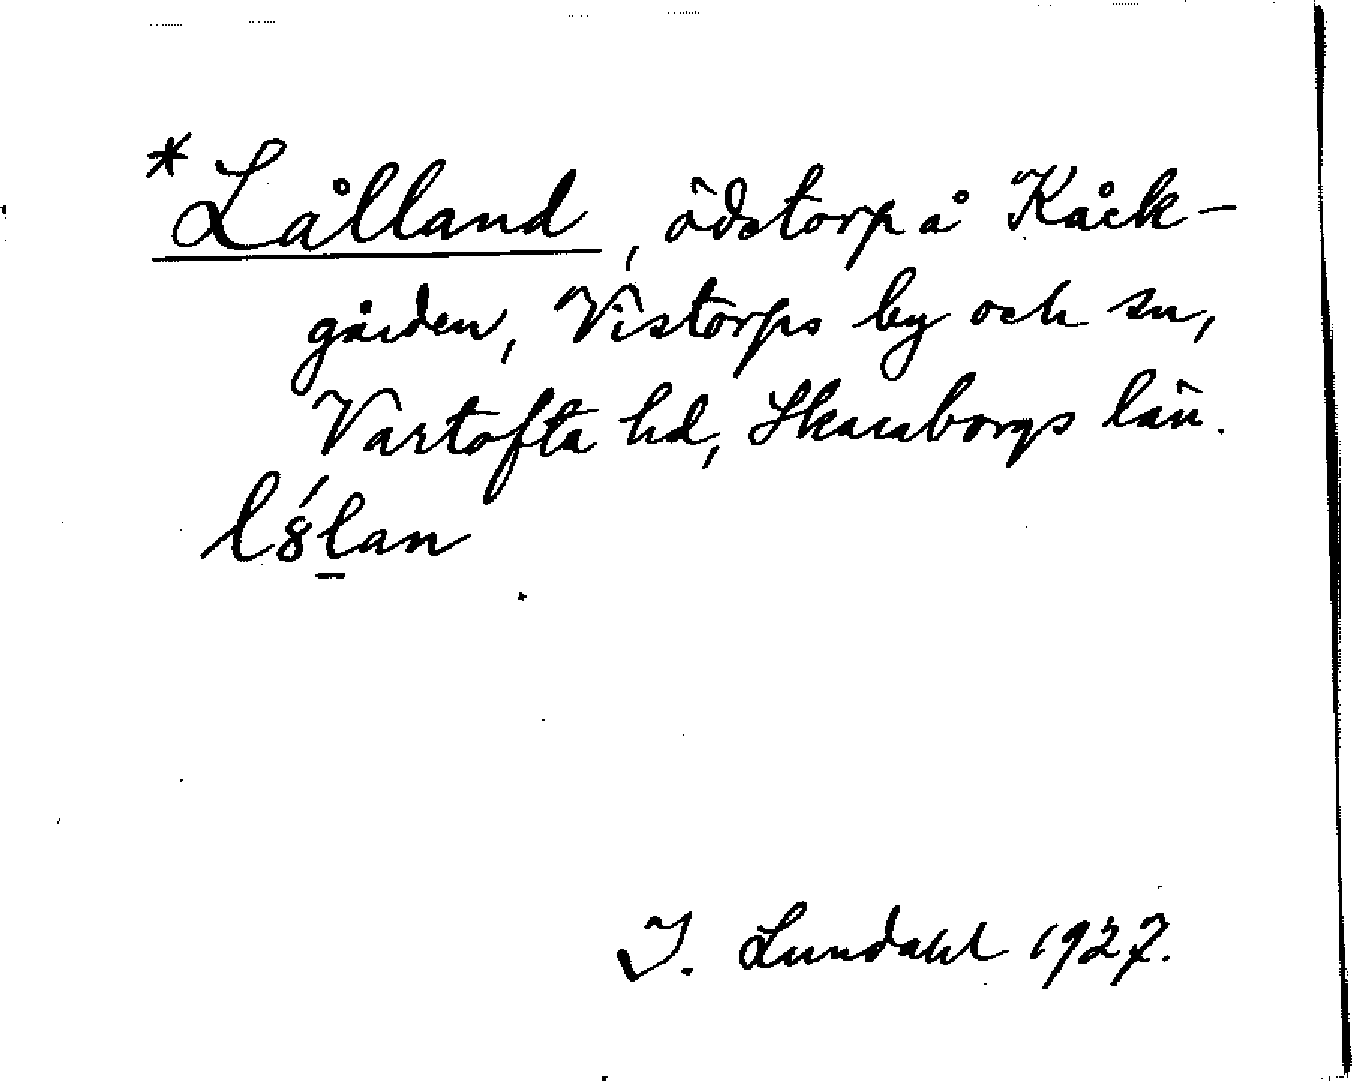 *Lålland, ödetorp å Kåck-
gården, Vistorps by och sn,
Vartofta hd, Skaraborgs län.
l8́lan
I. Lundahl 1927.